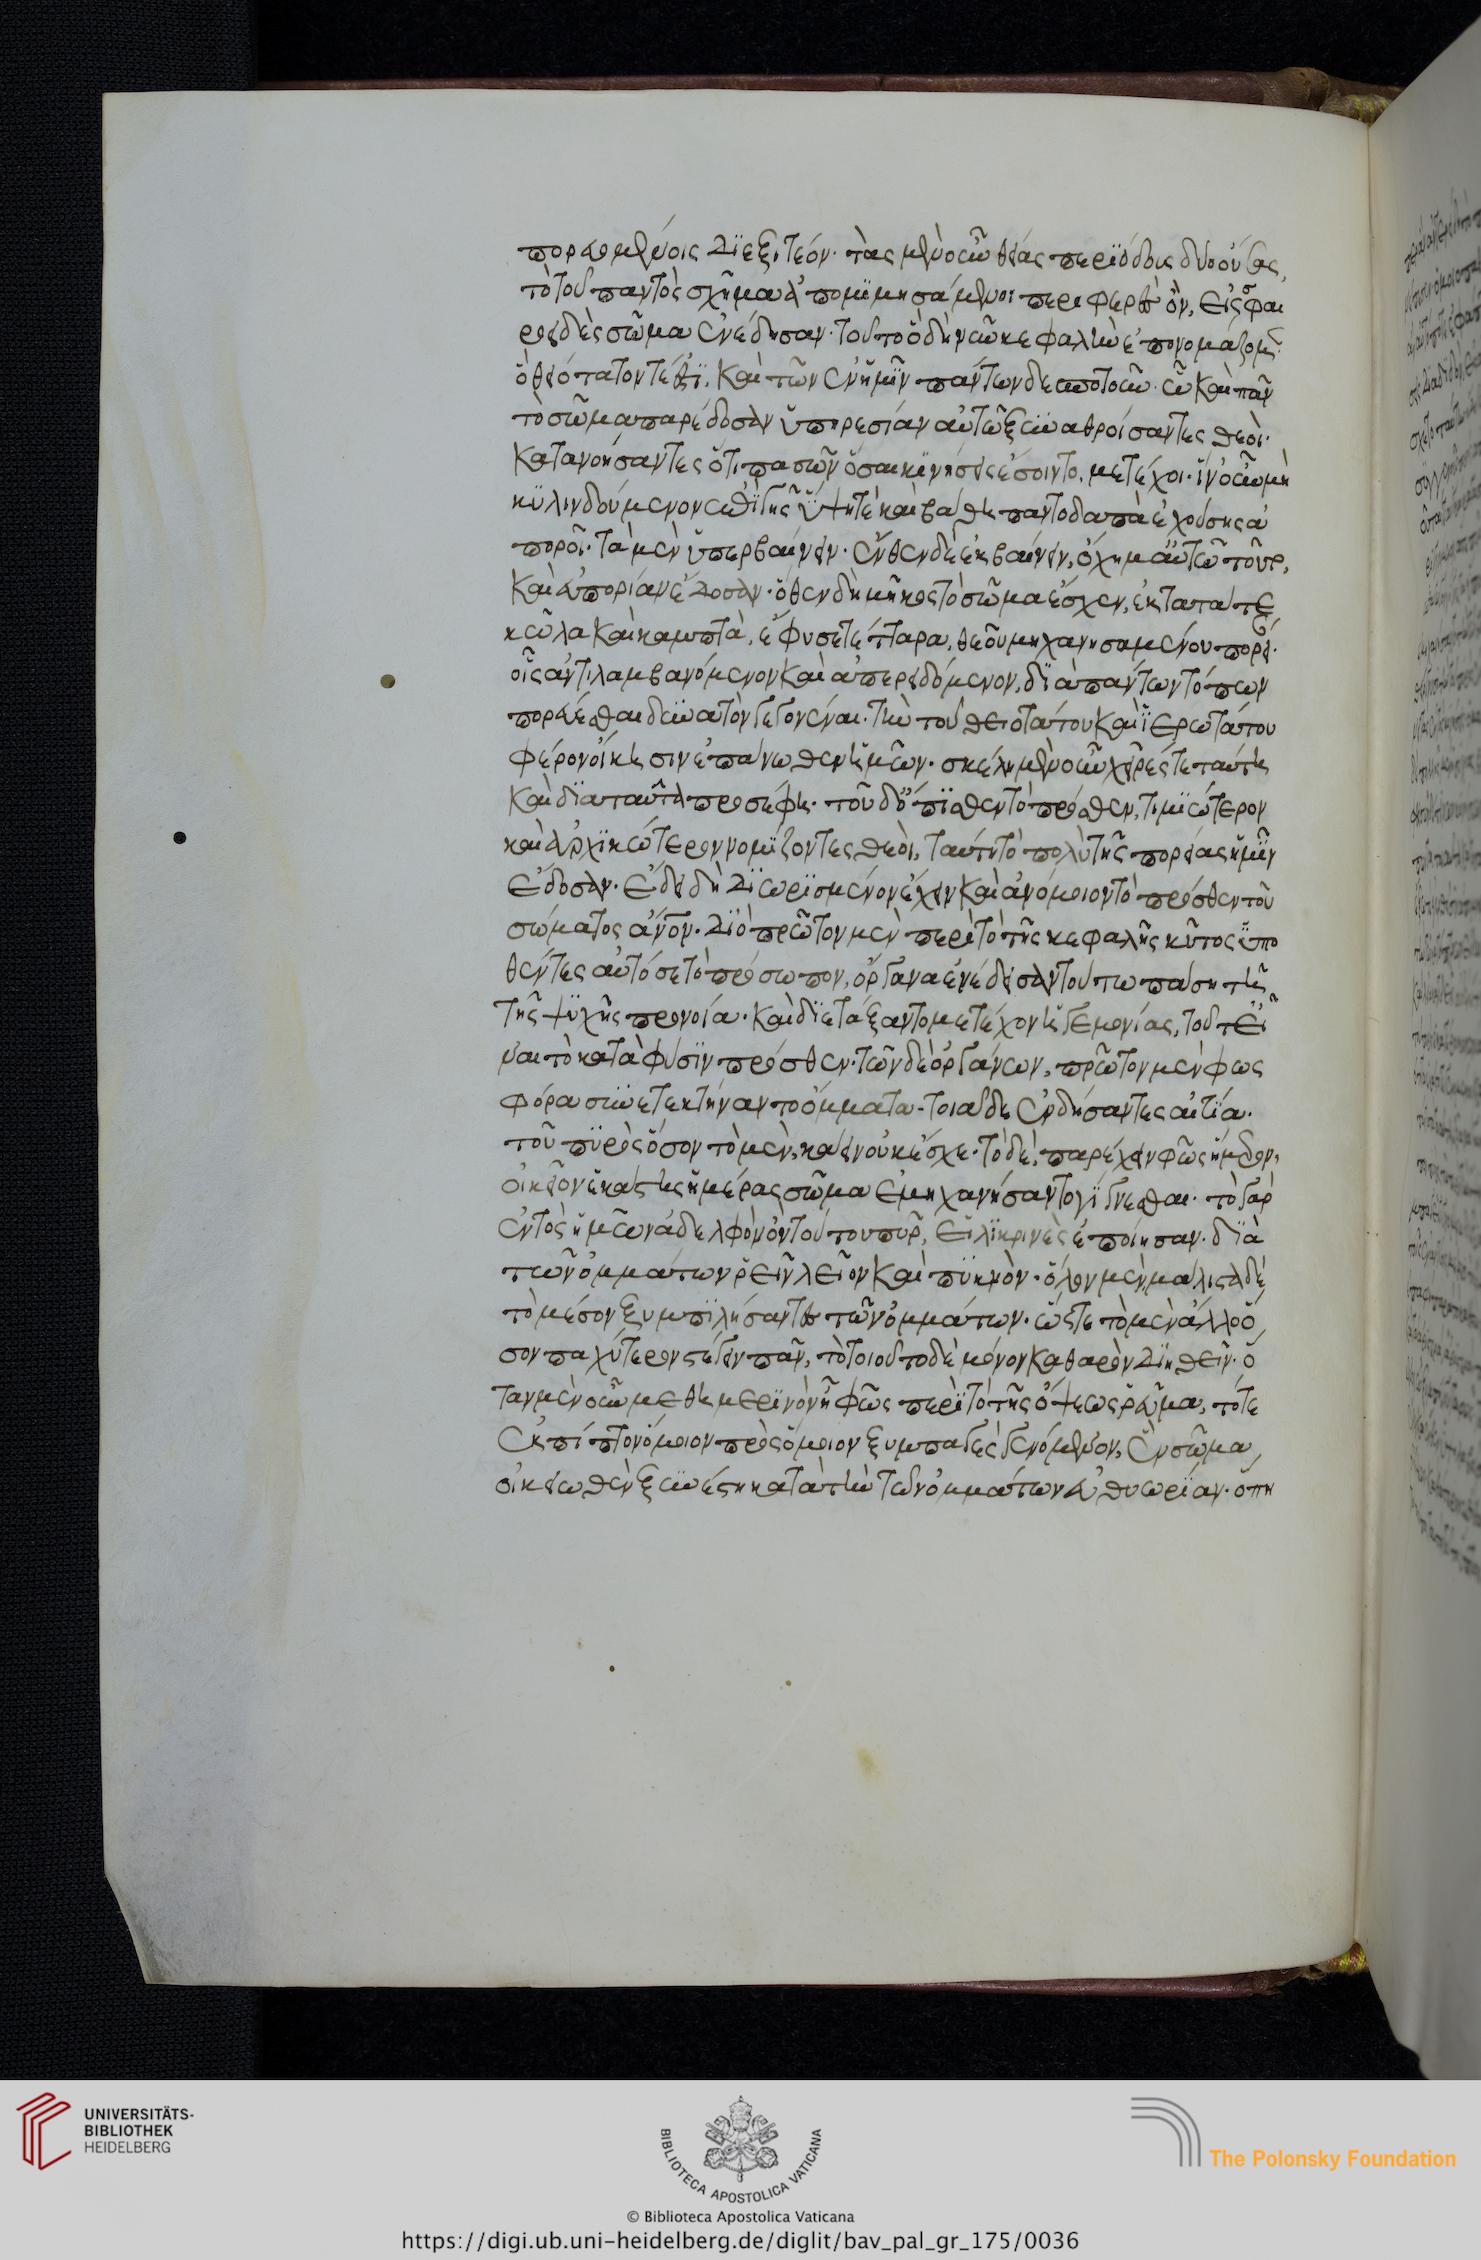 πορευομένοις διεξιτέον· τὰς μὲν οὖν θείας περιόδους δύο οὔσας,
τὸ τοῦ παντὸς σχῆμα ἀπομιμησάμενοι περιφερὲς ὂν, εἰς σφαι
ροειδὲς σῶμα ἐνέδησαν· τοῦτο ὃ δὴ νῦν κεφαλὴν ἐπονομάζομεν·
ὃ θειότατόν τέ ἐστι, καὶ τῶν ἐν ἡμῖν πάντων δεσποτοῦν· ᾧ καὶ πᾶν
τὸ σῶμα παρέδοσαν ὑπηρεσίαν αὐτῷ ξυναθροίσαντες θεοὶ·
κατανοήσαντες ὅτι πασῶν ὅσαι κινήσεις ἔσοιντο, μετέχοι· ἵν' οὖν μὴ
κυλινδούμενον ἐπὶ γῆς ὕψη τὲ καὶ βάθη παντοδαπὰ ἐχούσης ἀ
ποροῖ· τὰ μὲν ὑπερβαίνειν· ἔνθεν δὲ ἐκβαίνειν, ὄχημα αὐτῷ τοῦτο,
καὶ εὐπορίαν ἔδοσαν· ὅθεν δὴ μῆκος τὸ σῶμα ἔσχεν, ἐκτατά τε
κῶλα καὶ καμπτὰ, ἔφυσε τέτταρα, θεοῦ μηχανησαμένου πορεί·
οἷς ἀντιλαμβανόμενον καὶ ἀπερειδόμενον, διὰ πάντων τόπων
πορεύεσθαι δυνατὸν γέγονέναι· τὴν τοῦ θειοτάτου καὶ ἱερωτάτου
φέρον οἴκησιν ἐπάνωθεν ἡμῶν· σκέλη μὲν οὖν χεῖρές τε ταύτῃ
καὶ διὰ ταῦτα προσέφη· τοῦ δ' ὄπισθεν τὸ πρόσθεν, τιμιώτερον
καὶ ἀρχικώτερον νομίζοντες θεοὶ, ταύτῃ τὸ πολὺ τῆς πορείας ἡμῖν
ἔδοσαν· ἔδει δὴ διωρισμένον ἔχειν καὶ ἀνόμοιον τὸ πρόσθεν τοῦ
σώματος ἄνθρωπον· διὸ πρῶτον μὲν περὶ τὸ τῆς κεφαλῆς κύτος ὑπο
θέντες αὐτόσε τὸ πρόσωπον, ὄργανα ἐνέδησαν τούτω πάση τῇ
τῆς ψυχῆς προνοία· καὶ διέταξαν τὸ μετέχον ἡγεμονίας, τοῦτ' εἶ
ναι τὸ κατὰ φύσιν πρόσθεν· τῶν δὲ ὀργάνων, πρῶτον μὲν φως
φόρα συνετεκτήναντο ὄμματα· τοιᾷδε ἐνδήσαντες αἰτία·
τοῦ πυρὸς ὅσον τὸ μὲν, καίειν οὐκ ἔσχε· τὸ δὲ, παρέχειν φῶς ἥμερον,
οἰκεῖον ἑκάστης ἡμέρας σῶμα ἐμηχανήσαντο γίγνεσθαι· τὸ γὰρ
ἐντὸς ἡμῶν ἀδελφὸν ὂν τούτου πῦρ, εἰλικρινὲς ἐποίησαν· διὰ
τῶν ὀμμάτων ῥεῖν λεῖον καὶ πυκνὸν· ὅλον μὲν μάλιστα δὲ
τὸ μέσον ξυμπιλήσαντες τῶν ὀμμάτων· ὥστε τὸ μὲν ἄλλο ὅ
σον παχύτερον στέγειν πᾶν, τὸ τοιοῦτο δὲ μόνον καθαρὸν διηθεῖν· ὅ
ταν μὲν οὖν μεθημερινὸν ἦ φῶς περὶ τὸ τῆς ὄψεως ῥεῦμα, τότε
ἐκπίπτον ὅμοιον πρὸς ὅμοιον ξυμπαγὲς γενόμενον, ἓν σῶμα
οἰκειωθὲν ξυνέστη κατὰ τὴν τῶν ὀμμάτων εὐθυωρίαν· ὅπη
UNIVERSITÄTS-
BIBLIOTHEK
HEIDELBERG
BIBLIOTECA APOSTOLICA VATICANA
The Polonsky Foundation
© Biblioteca Apostolica Vaticana
https://digi.ub.uni-heidelberg.de/diglit/bav_pal_gr_175/0036